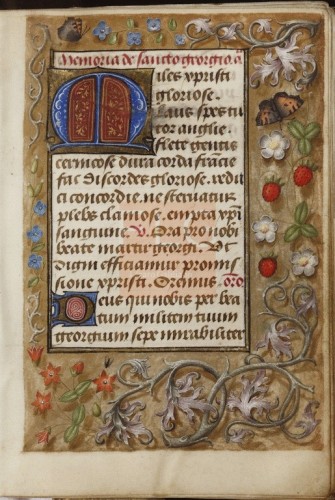 Memoria de sancto georgio añ
Miles xpristi
gloriose.
laus spes tu
tor anglie.
flete gentis
cernicose dura corda francie
fac discordes gloriose. redu
ci concordie. ne sternatur
plebs clamose. empta xp̄i
sanguine. V. Ora pro nobi
beate martir georgi. Vt
digni efficiamur promis
sione xpristi. Oremus. oro
Deus qui nobis per bea
tum militem tuum
georgium sepe mirabiliter